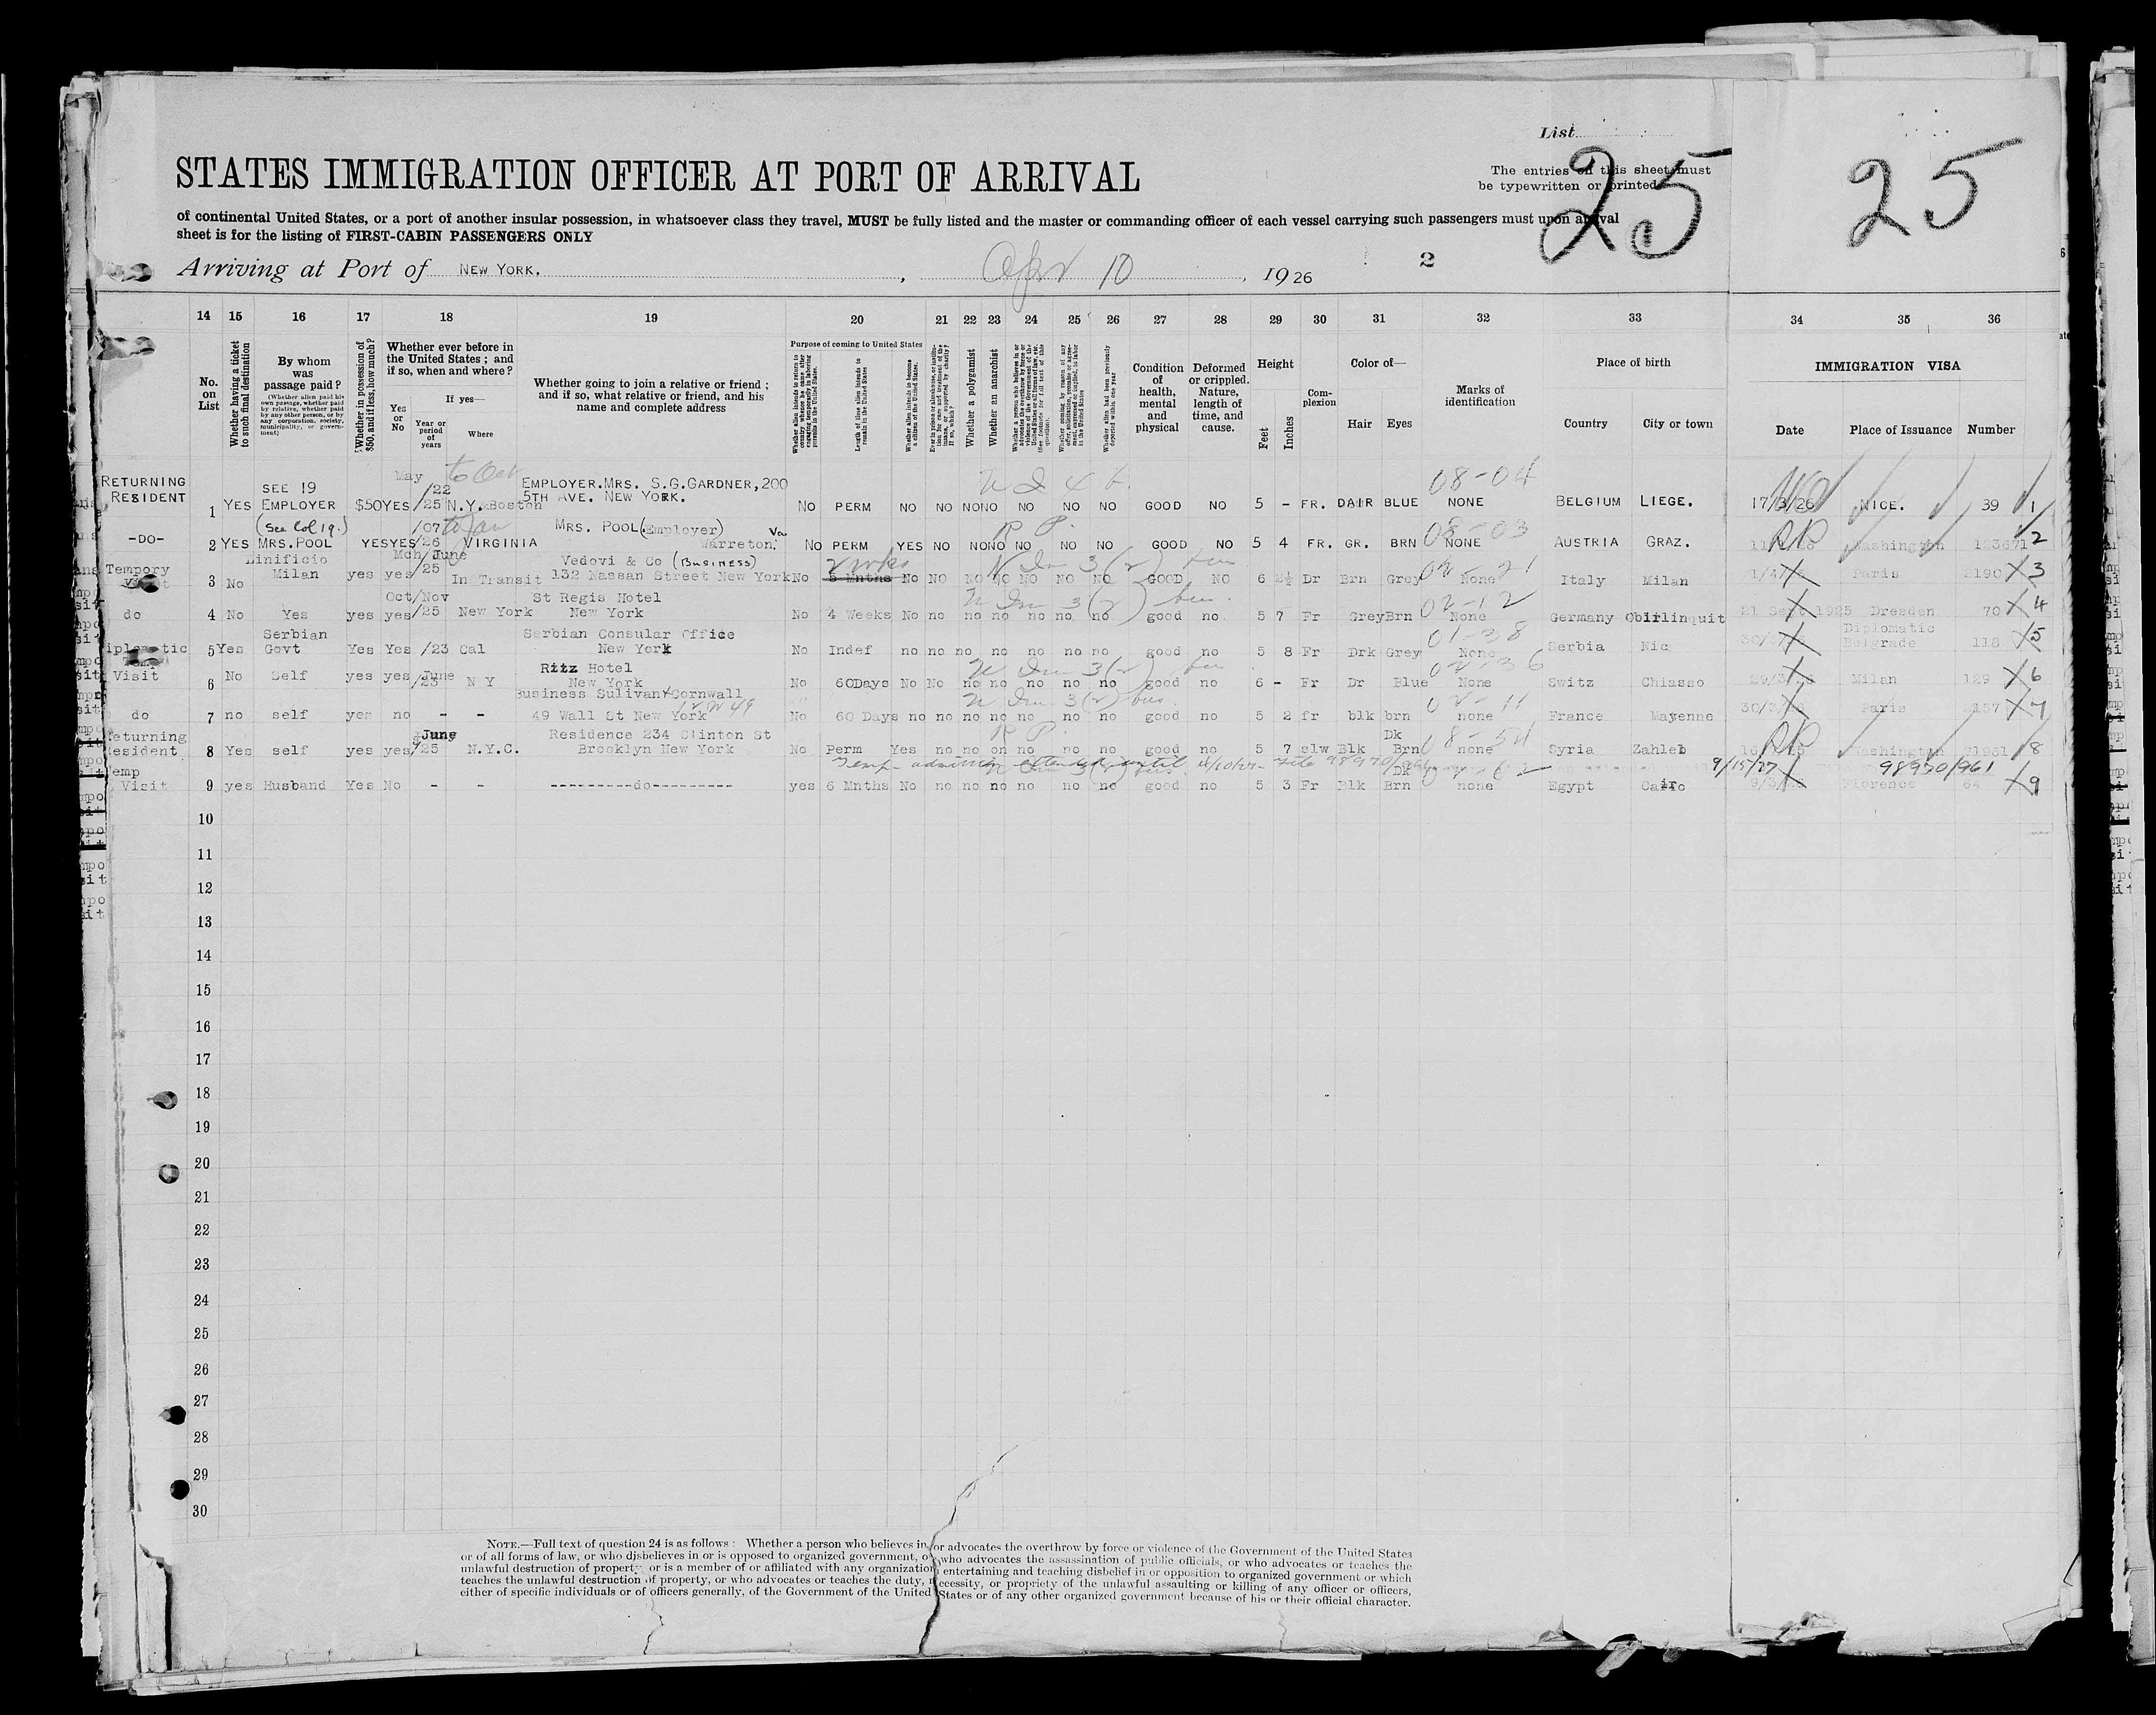 List
25
25
STATES IMMIGRATION OFFICER AT PORT OF ARRIVAL
The entries on this sheet must
be typewritten or printed
of continental United States, or a port of another insular possession, in whatsoever class they travel, MUST be fully listed and the master or commanding officer of each vessel carrying such passengers must upon arrival
sheet is for the listing of FIRST-CABIN PASSENGERS ONLY
Arriving at Port of NEW YORK. , Apr 10 , 1926
2
14 15 16 17 18 19 20 21 22 23 24 25 26 27 28 29 30 31 32 33 34 35 36
No. on List
Whether having a ticket to such final destination
By whom was passage paid?
(Whether alien paid his own passage, whether paid by relative, whether paid by any other person, or by any corporation, society, municipality, or government)
Whether in possession of $50, and if less, how much?
Whether ever before in the United States; and if so, when and where?
Yes or No
If yes—
Year or period of years
Where
Whether going to join a relative or friend; and if so, what relative or friend, and his name and complete address
Purpose of coming to United States
Whether alien intends to return to country whence he came after engaging temporarily in laboring pursuits in the United States.
Length of time alien intends to remain in the United States
Whether alien intends to become a citizen of the United States.
Whether a polygamist
Whether an anarchist
Condition of health, mental and physical
Deformed or crippled. Nature, length of time, and cause.
Height
Feet
Inches
Complexion
Color of—
Hair
Eyes
Marks of identification
Place of birth
Country
City or town
IMMIGRATION VISA
Date
Place of Issuance
Number
RETURNING SEE 19 May /22 to Oct EMPLOYER.MRS. S.G.GARDNER,200 08-04
RESIDENT 1 YES EMPLOYER $50YES /25 N.Y.&Boston 5TH AVE. NEW YORK. NO PERM NO NO NONO NO NO NO GOOD NO 5 - FR. DAIR BLUE NONE BELGIUM LIEGE. 17/3/26 NICE. 39 1
(See Col 19.) /07 to Jan MRS. POOL (Employer) Va RP. 08-03 RP
-DO- 2 YES MRS.POOL YESYES /26 VIRGINIA Warreton. NO PERM YES NO NONO NO NO NO GOOD NO 5 4 FR. GR. BRN NONE AUSTRIA GRAZ. Washington 2
Linificio Mch/June Vedovi & Co (BUSINESS) 2 wks
Tempory 3 No Milan yes yes /25 In Transit 132 Nassan Street New York No 5 Mnths No NO NO NO NO NO NO GOOD NO 6 2½ Dr Brn Grey None Italy Milan Paris 2190 3
Oct/Nov St Regis Hotel 02-12
do 4 No Yes yes yes /25 New York New York No 4 Weeks No no no no no no no good no 5 7 Fr Grey Brn None Germany 21 Sept 1925 Dresden 70 4
Serbian Serbian Consular Office 01-38 Diplomatic
iplomatic 5 Yes Govt Yes Yes /23 Cal New York No Indef no no no no no no no good no 5 8 Fr Drk Grey None Serbia Nic Belgrade 118 5
Visit June Ritz Hotel 02-36
6 No Self yes yes /25 N Y New York No 60Days No No no no no no no good no 6 - Fr Dr Blue None Switz Chiasso Milan 129 6
Business Sulivan & Cornwall 02-11
do 7 no self yes no - - 49 Wall St New York No 60 Days no no no no no no no good no 5 2 fr blk brn none France Mayenne Paris 2157 7
eturning June Residence 234 Clinton St RP. Dk 08-54 RP
esident 8 Yes self yes yes /25 N.Y.C. Brooklyn New York No Perm Yes no no on no no no good no 5 7 slw Blk Brn none Syria Zahleb Washington 8
emp Temp- admission extended until 4/10/27 - File 98970/961 Dk 9/15/27 98970/961
Visit 9 yes Husband Yes No - - ---------do--------- yes 6 Mnths No no no no no no no good no 5 3 Fr Blk Brn none Egypt Cairo Florence 64 9
10
11
12
13
14
15
16
17
18
19
20
21
22
23
24
25
26
27
28
29
30
NOTE.—Full text of question 24 is as follows: Whether a person who believes in or advocates the overthrow by force or violence of the Government of the United States
or of all forms of law, or who disbelieves in or is opposed to organized government, or who advocates the assassination of public officials, or who advocates or teaches the
unlawful destruction of property, or is a member of or affiliated with any organization entertaining and teaching disbelief in or opposition to organized government or which
teaches the unlawful destruction of property, or who advocates or teaches the duty, necessity, or propriety of the unlawful assaulting or killing of any officer or officers,
either of specific individuals or of officers generally, of the Government of the United States or of any other organized government because of his or their official character.